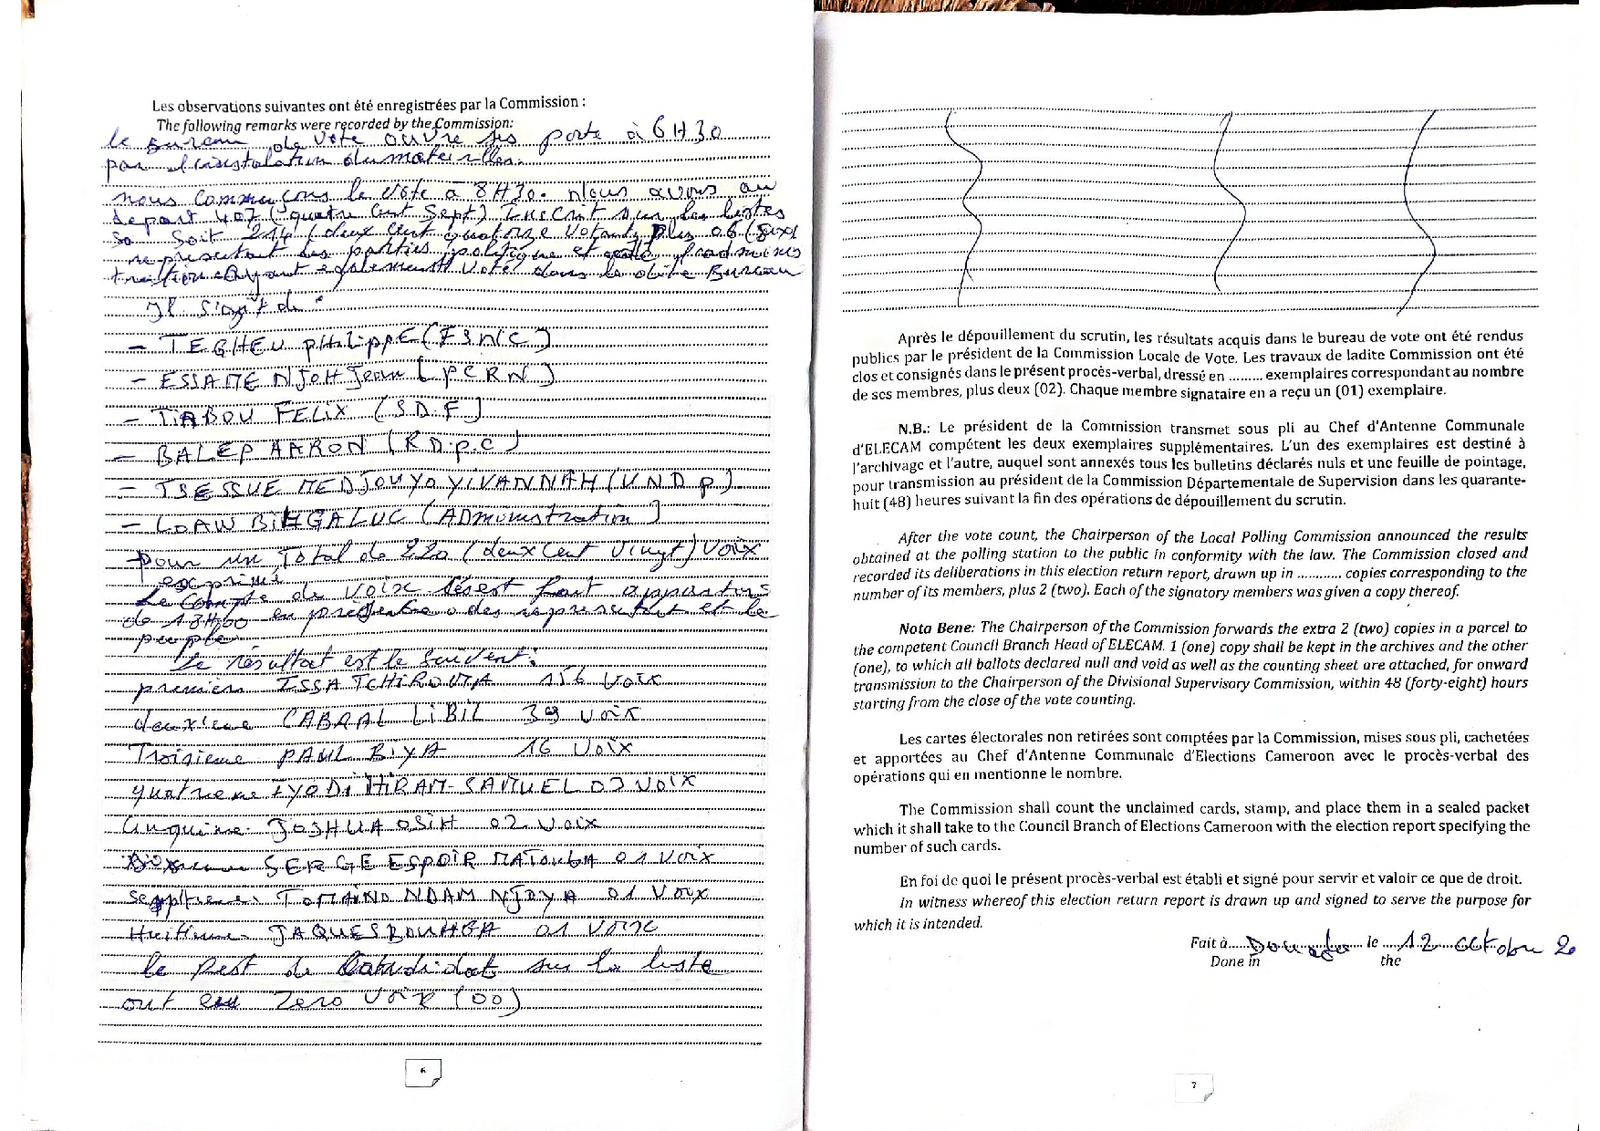 Les observations suivantes ont été enregistrées par la Commission :
The following remarks were recorded by the Commission:
le Bureau de vote ouvre ses porte à 6H30
par l'instalation du materielles.
nous commençons le vote à 8H30. Nous avons au
depart 407 (quatre cent sept) Inscrit sur les listes
so soit 214 (deux cent quatorze votant) plus 06 (six)
representant des parties politique et l'adminis
tration ayant egalement voté dans le dite Bureau
Il s'agit de :
- TEGHEU PHILIPPE (FSNC)
- ESSAME NJOH Jean (PCRN)
- TIABOU FELIX (SDF)
- BALEP AARON (RDPC)
- TSESSUE MEDJOUYO YIVANNAH (UNDP)
- LOAW BIHGALUC (Administration)
pour un Total de 220 (deux cent vingt) voix
exprimé
Le compte de voix s'est fait appartir
de 18H00 en presence des representant et le
peuple.
Le résultat est le suivent:
premiers ISSA TCHIROUMA 156 voix
deuxieme CABRAL LIBIL 39 voix
Troisieme PAUL BIYA 16 voix
quatrieme IYODI HIRAM-SAMUEL 03 voix
Cinquime JOSHUA OSIH 02 voix
SERGE ESPOIR MATOMBA 01 voix
Septieme TOMAINO NDAM NJOYA 01 voix
Huitieme JAQUES BOUHGA 01 voix
le Rest de Candidat sur la liste
ont eu Zero voix (00)
6
Après le dépouillement du scrutin, les résultats acquis dans le bureau de vote ont été rendus
publics par le président de la Commission Locale de Vote. Les travaux de ladite Commission ont été
clos et consignés dans le présent procès-verbal, dressé en ......... exemplaires correspondant au nombre
de ses membres, plus deux (02). Chaque membre signataire en a reçu un (01) exemplaire.
N.B.: Le président de la Commission transmet sous pli au Chef d'Antenne Communale
d'ELECAM compétent les deux exemplaires supplémentaires. L'un des exemplaires est destiné à
l'archivage et l'autre, auquel sont annexés tous les bulletins déclarés nuls et une feuille de pointage,
pour transmission au président de la Commission Départementale de Supervision dans les quarante-
huit (48) heures suivant la fin des opérations de dépouillement du scrutin.
After the vote count, the Chairperson of the Local Polling Commission announced the results
obtained at the polling station to the public in conformity with the law. The Commission closed and
recorded its deliberations in this election return report, drawn up in ............ copies corresponding to the
number of its members, plus 2 (two). Each of the signatory members was given a copy thereof.
Nota Bene: The Chairperson of the Commission forwards the extra 2 (two) copies in a parcel to
the competent Council Branch Head of ELECAM. 1 (one) copy shall be kept in the archives and the other
(one), to which all ballots declared null and void as well as the counting sheet are attached, for onward
transmission to the Chairperson of the Divisional Supervisory Commission, within 48 (forty-eight) hours
starting from the close of the vote counting.
Les cartes électorales non retirées sont comptées par la Commission, mises sous pli, cachetées
et apportées au Chef d'Antenne Communale d'Elections Cameroon avec le procès-verbal des
opérations qui en mentionne le nombre.
The Commission shall count the unclaimed cards, stamp, and place them in a sealed packet
which it shall take to the Council Branch of Elections Cameroon with the election report specifying the
number of such cards.
En foi de quoi le présent procès-verbal est établi et signé pour servir et valoir ce que de droit.
In witness whereof this election return report is drawn up and signed to serve the purpose for
which it is intended.
Fait à Douala le 12 octobre 20
Done in the
7